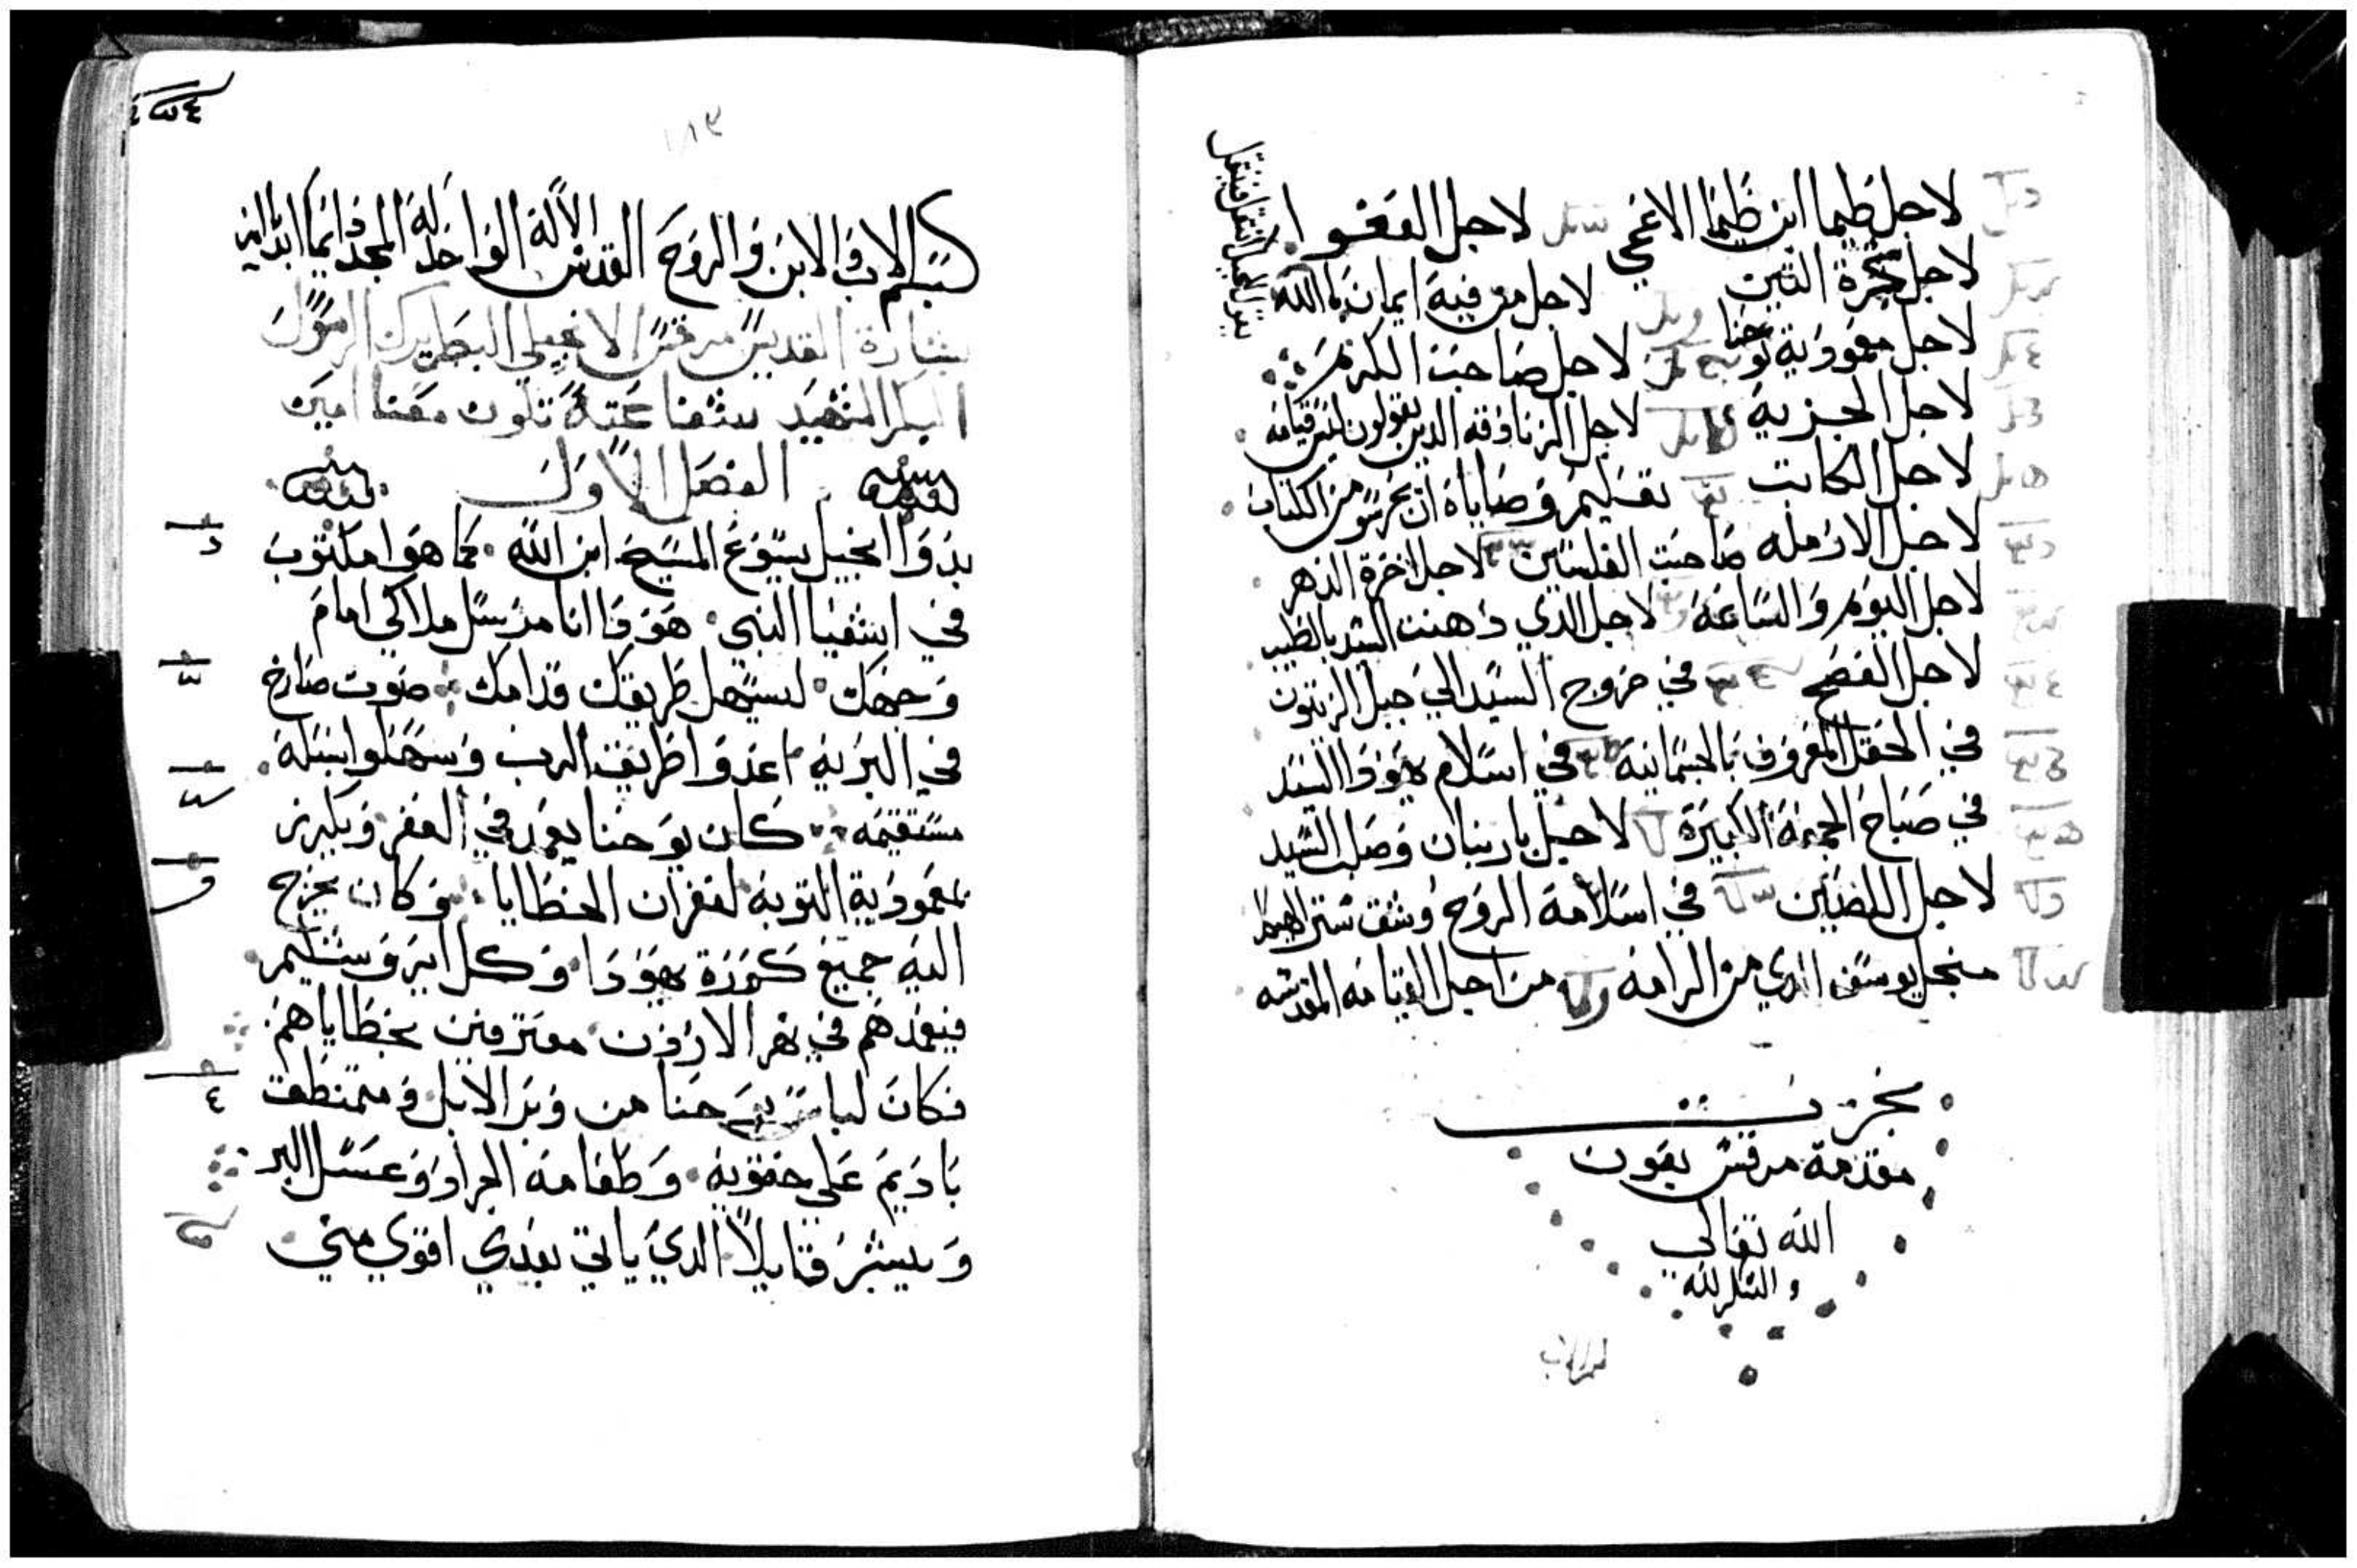 لاجل طيما ابن طيما الاعمي لاجل العفو
لاجل شجرة التين لاجل من فيه ايمان بالله
لاجل معمودية يوحنا لاجل صاحب الكرم
لاجل الجزية لاجل الزنادقه الدين يقولون ليس قيامه
لاجل الكاتب تعليم وصاياه ان يحرسو من الكتاب
لاجل الارمله صاحبت الفلسين لاجل اخرة الدهر
لاجل اليوم والساعة لاجل الدي دهنت السيد بالطيب
لاجل الفصح في خروج السيد الي جبل الزيتون
في الحقل المعروف بالجسمانية في اسلام يهودا السيد
في صباح الجمعة الكبيرة لاجل باربنان وصلب السيد
لاجل اللصين في اسلامة الروح وشق ستر الهيكل
منجل يوسف الدي من الرامه من اجل القيامه المقدسه
نجزت
مقدمة مرقس بعون
الله تعالي
والشكر لله
١١٣
بسم الاب والابن والروح القدس الاله الواحد له المجد دايما ابدا امين
بشارة القديس مرقس الانجيلي البطريرك الرسول
البكر الشهيد شفاعته تكون معنا امين
الفصل الاول
بدوا انجيل يسوع المسيح ابن الله كما هوا مكتوب
في اشعيا النبي هودا انا مرسل ملاكي امام
وجهك ليسهل طريقك قدامك صوت صارخ
في البريه اعدوا طريق الرب وسهلوا سبله
مستقيمه كان يوحنا يعمد في القفر ويكرز
بمعمودية التوبه لغفران الخطايا وكان يخرج
اليه جميع كورة يهودا وكل ايروشليم
فيعمدهم في نهر الاردن معترفين بخطاياهم
فكان لباس يوحنا من وبر الابل ومتمنطق
باديم علي حقويه وطعامه الجراد وعسل البر
ويبشر قايلا الدي ياتي بعدي اقوي مني